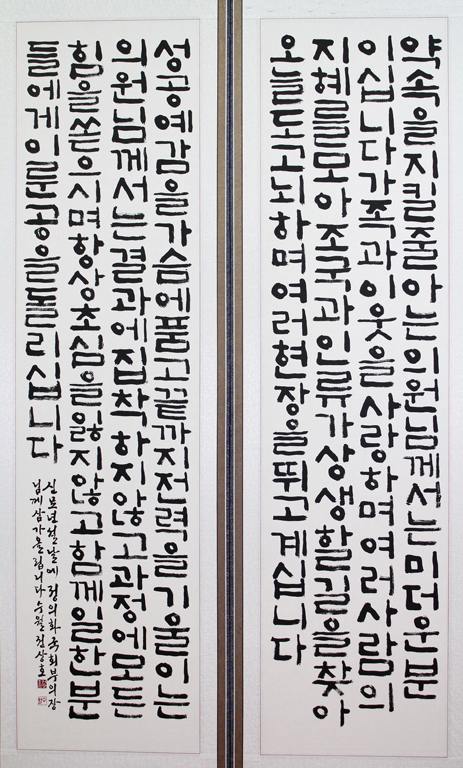 약속을지킬줄아는의원님께서는미더운분
이십니다가족과이웃을사랑하며여러사람의
지혜를모아조국과인류가상생할길을찾아
오늘도고되하며여러현장을뛰고계십니다
성공예감을가슴에품고끝까지전력을기울이는
의원님께서는결과에집착하지않고과정에모든
힘을쏟으시며항상초심을잃지않고함께일한분
들에게이룬공을돌리십니다
신묘년섣달에정의화국회부의장
님께삼가올립니다수월전상호